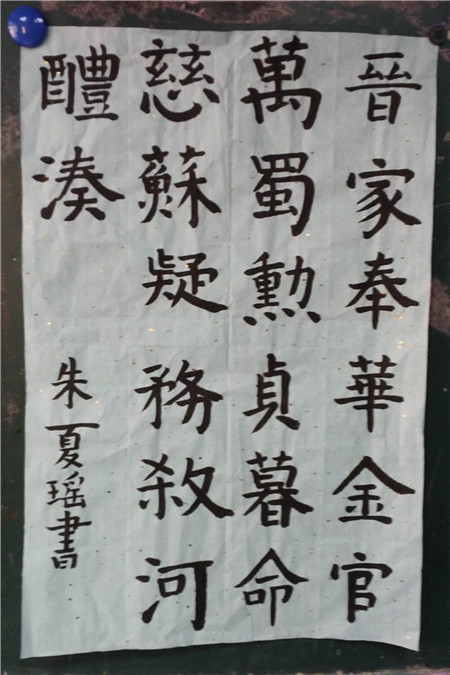 晉家奉華金官
萬蜀勲貞暮命
慈蘇疑務敎河
醴湊
朱夏瑶書